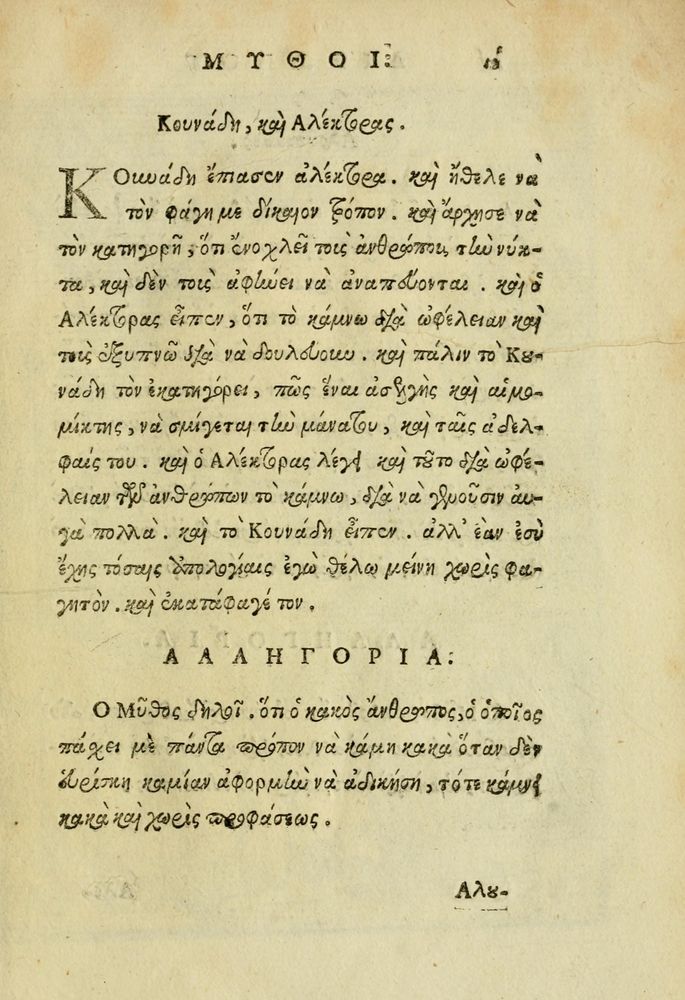 ΜΥΘΟΙ
Κουνάδη, καὶ Αλέκτορας.
ΚΟυνάδη ἔπιασεν ἀλέκτορα. καὶ ἤθελε νὰ
τὸν φάγῃ με δίκαιον τρόπον. καὶ ἄρχησε νὰ
τὸν κατηγορῇ, ὅτι ἐνοχλεῖ τοὶς ἀνθρώπου, τὴν νύκ-
τα, καὶ δὲν τοὶς ἀφήνει νὰ ἀναπεύονται. καὶ ὁ
Αλέκτορας εἶπεν, ὅτι τὸ κάμνω διὰ ὠφέλειαν καὶ
τοὶς ἐξυπνῶ διὰ νὰ δουλεύουν. καὶ πάλιν τὸ Κου-
νάδη τὸν ἐκατηγόρει, πῶς ἔναι ἀσελγὴς καὶ αἱμο-
μίκτης, νὰ σμίγεται τὴν μάνατου, καὶ ταῖς ἀδελ-
φαίς του. καὶ ὁ Αλέκτορας λέγει καὶ τοῦτο διὰ ὠφέ-
λειαν τῶν ἀνθρώπων τὸ κάμνω, διὰ νὰ γεννοῦσιν αυ-
γὰ πολλὰ. καὶ τὸ Κουνάδη εἶπεν. ἀλλ' ἐὰν ἐσὺ
ἔχης τόσαις ἀπολογίαις ἐγὼ θέλω μείνη χωρὶς φα-
γητὸν. καὶ ἐκατάφαγέ τον.
ΑΛΛΗΓΟΡΙΑ:
Ο Μῦθος δηλοῖ. ὅτι ὁ κακὸς ἄνθρωπος, ὁ ὁποῖος
πάχει μὲ πάντα τρόπον νὰ κάμη κακὰ ὅταν δὲν
εὑρίσκη καμίαν ἀφορμὴν νὰ ἀδικήση, τότε κάμνει
κακὰ καὶ χωρὶς προφάσεως.
Αλου-